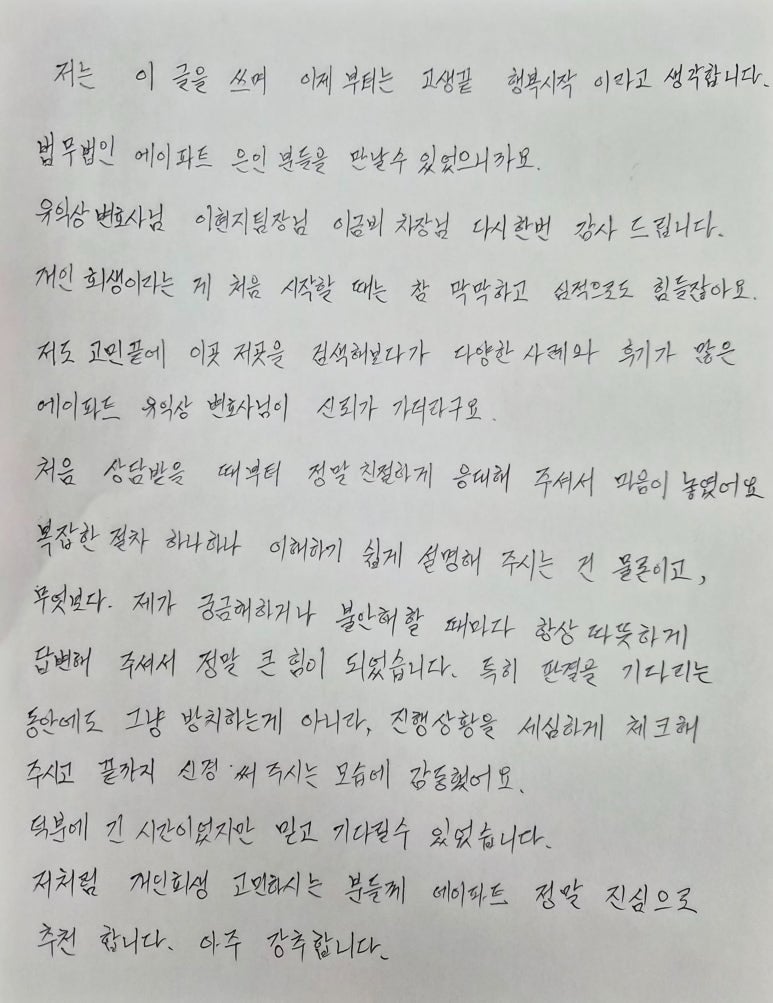 저는 이 글을 쓰며 이제 부터는 고생끝 행복시작 이라고 생각합니다.
법무법인 에이파트 은인 분들을 만날수 있었으니까요.
유익상 변호사님 이현지팀장님 이금비 차장님 다시한번 감사 드립니다.
개인 회생이라는 게 처음 시작할 때는 참 막막하고 심적으로도 힘들잖아요.
저도 고민끝에 이곳 저곳을 검색해보다가 다양한 사례와 후기가 많은
에이파트 유익상 변호사님이 신뢰가 가더라구요.
처음 상담받을 때부터 정말 친절하게 응대해 주셔서 마음이 놓였어요
복잡한 절차 하나하나 이해하기 쉽게 설명해 주시는 건 물론이고,
무엇보다. 제가 궁금해하거나 불안해 할 때마다 항상 따뜻하게
답변해 주셔서 정말 큰 힘이 되었습니다. 특히 판결을 기다리는
동안에도 그냥 방치하는게 아니라, 진행상황을 세심하게 체크해
주시고 끝까지 신경 써 주시는 모습에 감동했어요.
덕분에 긴 시간이었지만 믿고 기다릴수 있었습니다.
저처럼 개인회생 고민하시는 분들께 에이파트 정말 진심으로
추천 합니다. 아주 강추합니다.